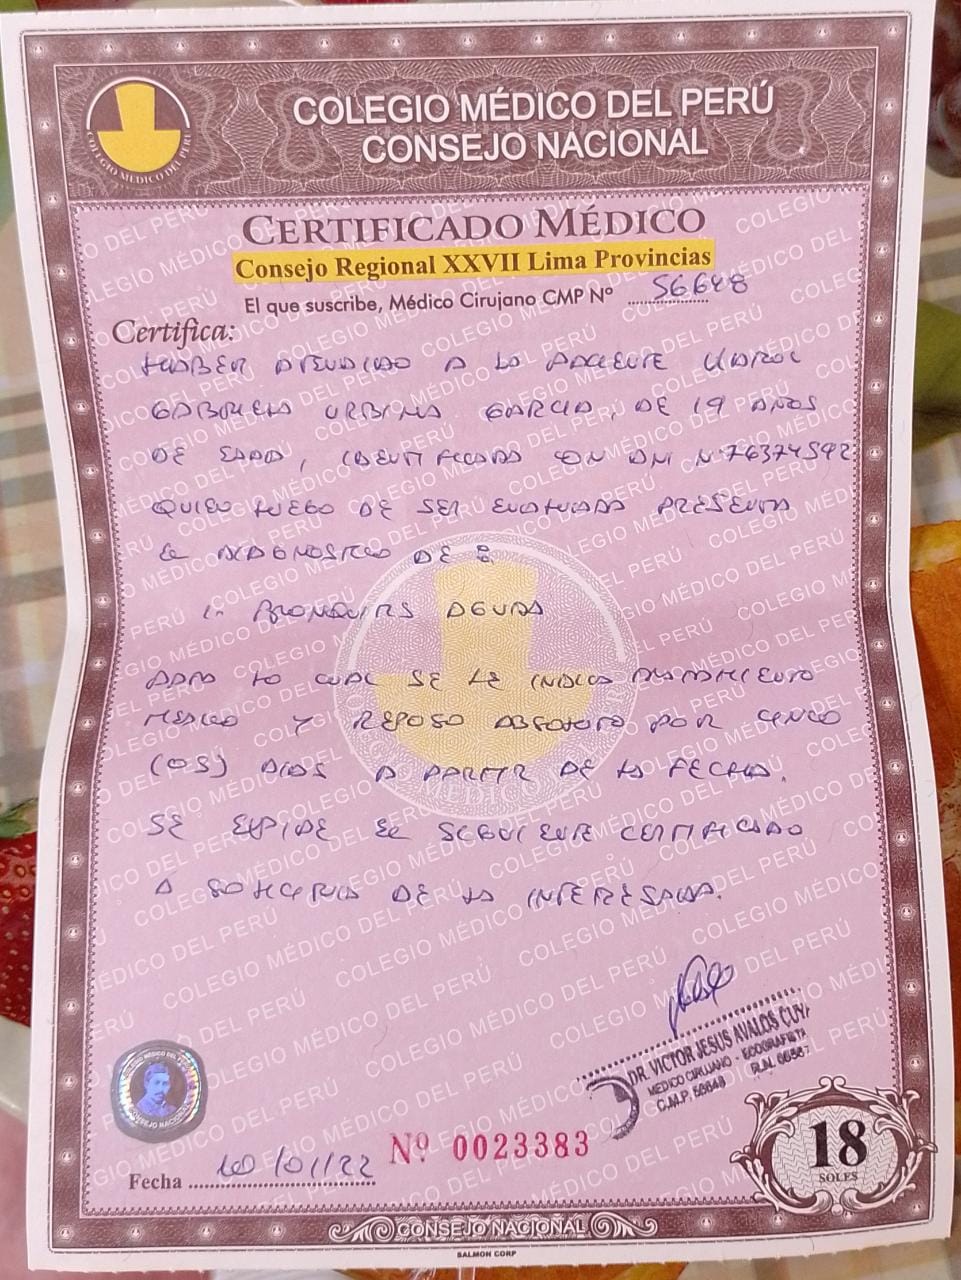 COLEGIO MÉDICO DEL PERÚ
CONSEJO NACIONAL
COLEGIO MÉDICO DEL PERÚ
CERTIFICADO MÉDICO
Consejo Regional XXVII Lima Provincias
El que suscribe, Médico Cirujano CMP Nº 56648
Certifica:
HABER ATENDIDO A LA PACIENTE
GABRIELA URBINA GARCIA, DE 19 AÑOS
DE EDAD, IDENTIFICADA CON DNI N° 76374592
QUIEN LUEGO DE SER EVALUADA PRESENTA
EL DIAGNOSTICO DE:
1. BRONQUITIS AGUDA
PARA LO CUAL SE LE INDICA TRATAMIENTO
MEDICO Y REPOSO ABSOLUTO POR CINCO
(05) DIAS A PARTIR DE LA FECHA.
SE EXPIDE EL SIGUIENTE CERTIFICADO
A SOLICITUD DE LA INTERESADA.
DR. VICTOR JESUS AVALOS CUYA
MEDICO CIRUJANO - ECOGRAFISTA
C.M.P. 56648
CONSEJO NACIONAL
Nº 0023383
Fecha 10/01/22
18
SOLES
CONSEJO NACIONAL
SALMON CORP